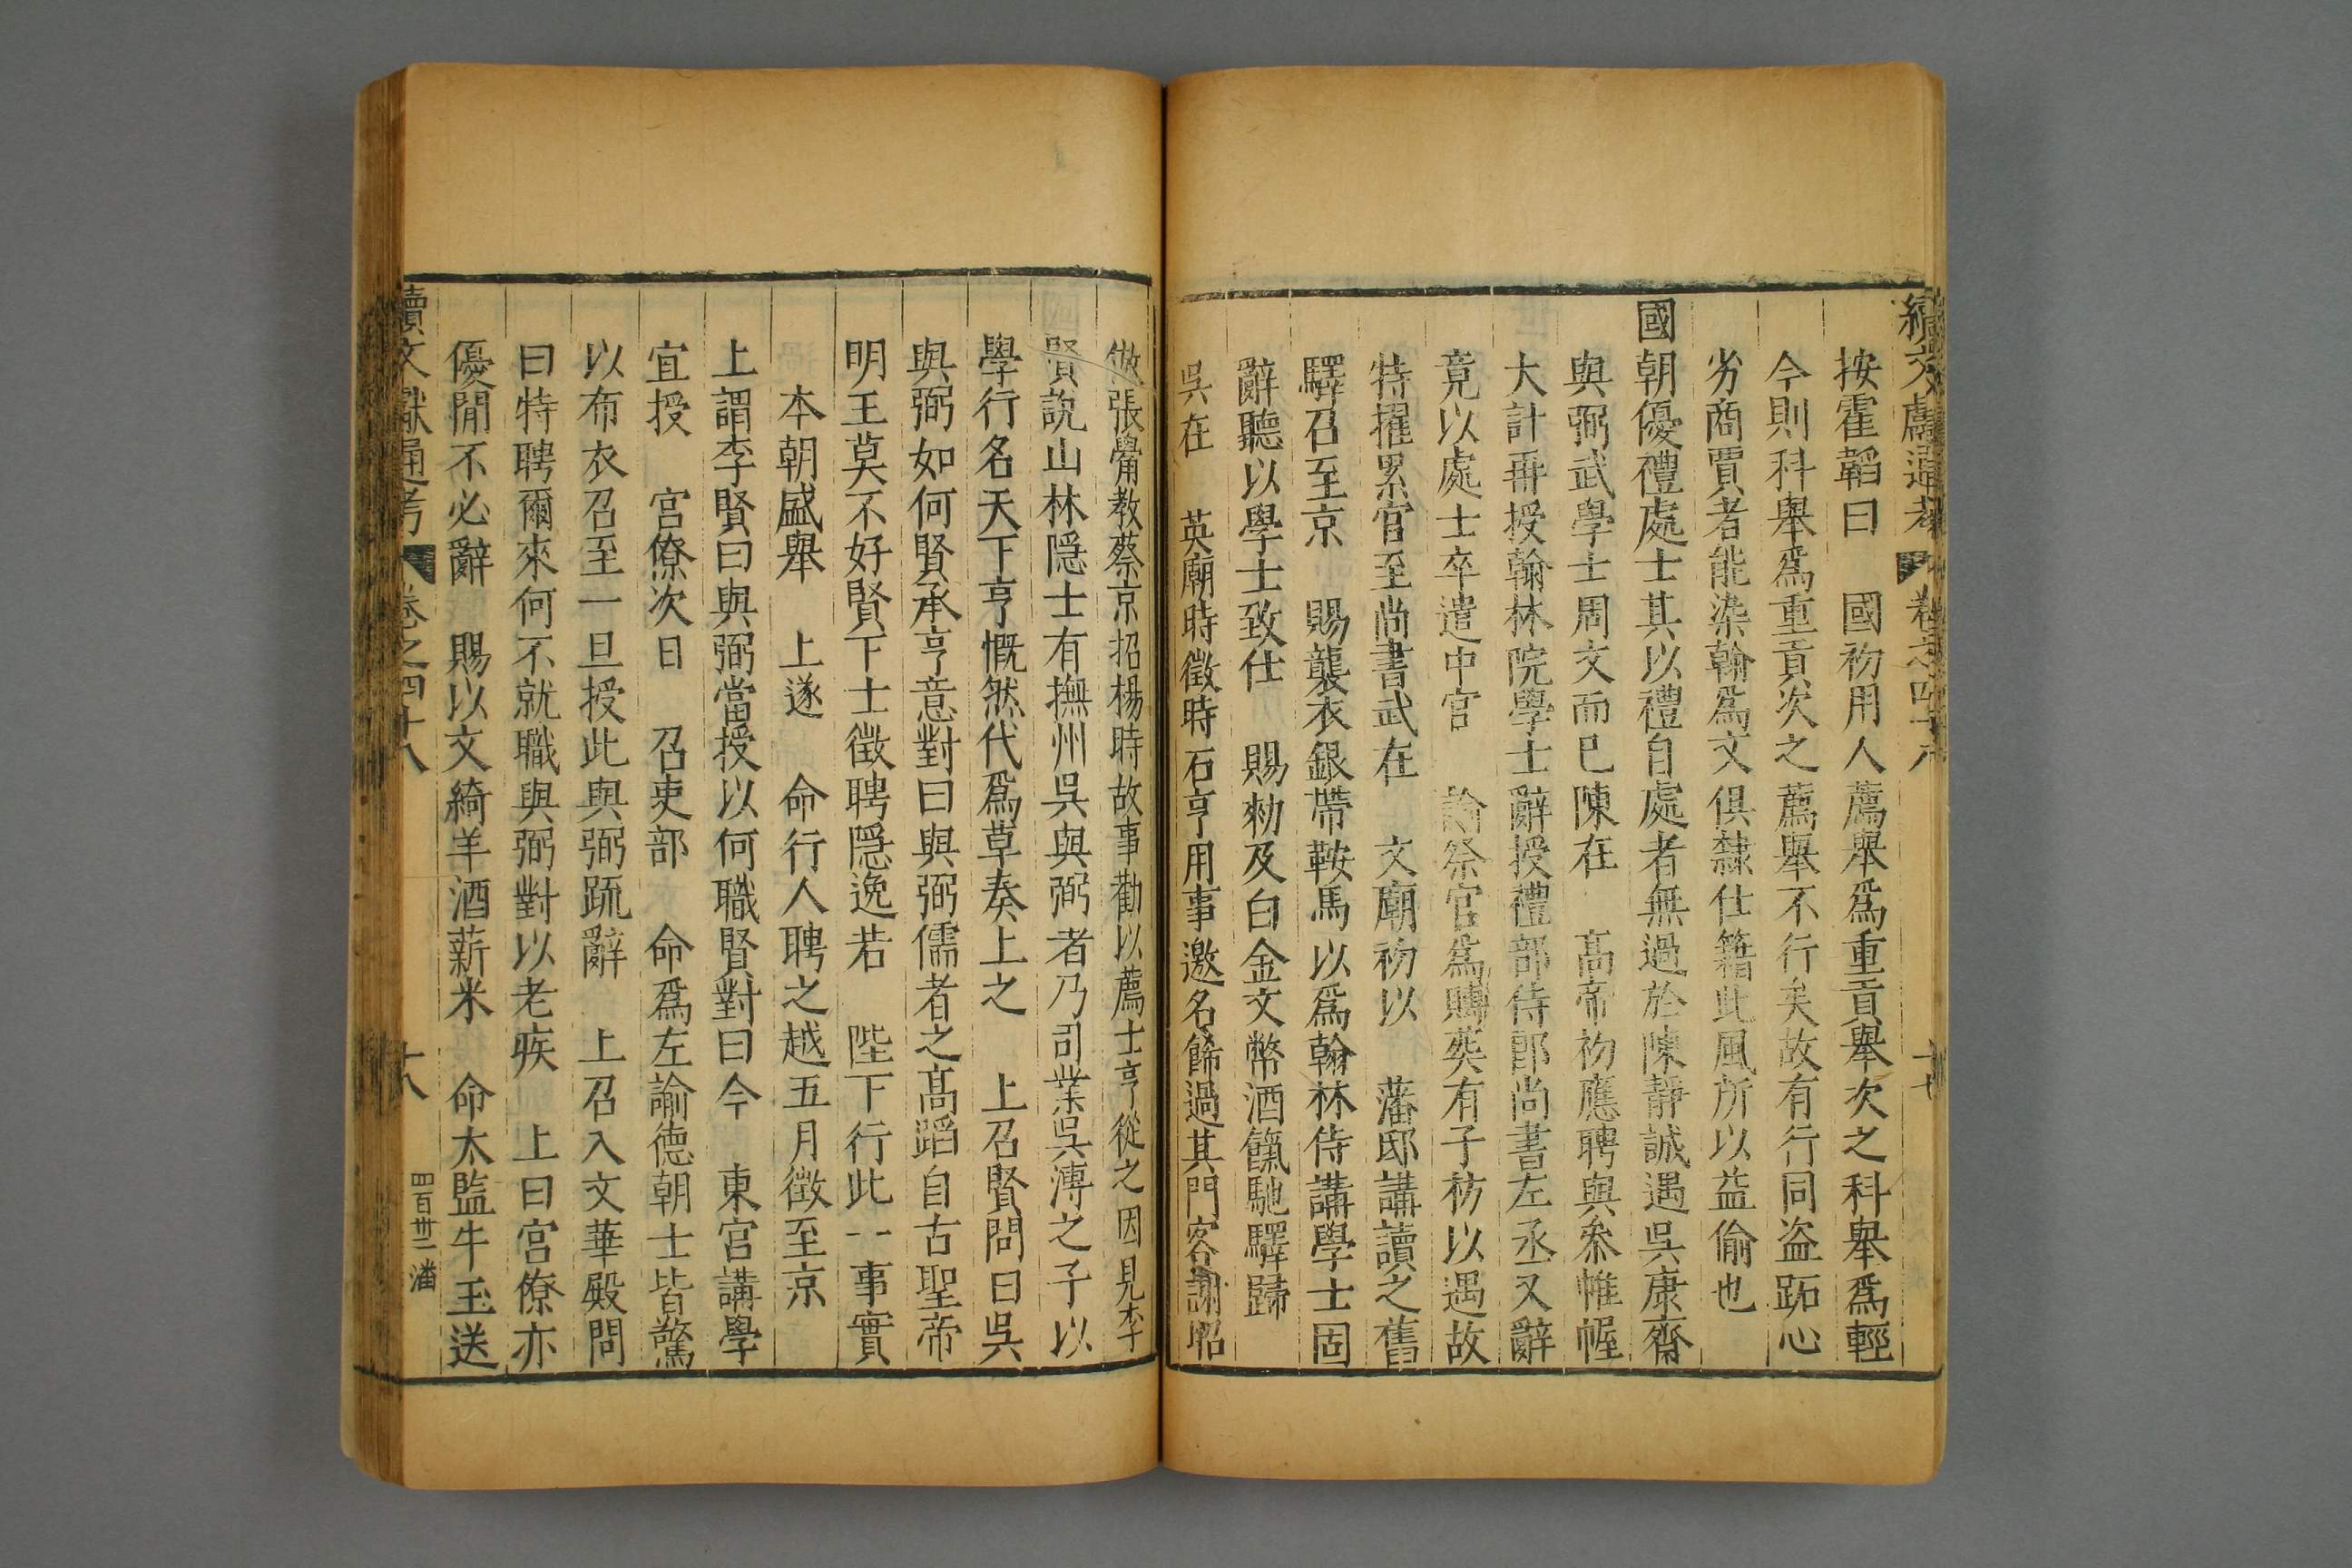 續文獻通考 卷之四十八 十七
按霍韜曰 國初用人薦舉爲重貢舉次之科舉爲輕
今則科舉爲重貢次之薦舉不行矣故有行同盜跖心
劣商賈者能染翰爲文俱隸仕籍此風所以益偷也
國朝優禮處士其以禮自處者無過於陳靜誠遇吳康齋
與弼武學士周文而已陳在 高帝初應聘與叅帷幄
大計再授翰林院學士辭授禮部侍郎尚書左丞又辭
竟以處士卒遣中官 諭祭官爲賻葬有子枋以遇故
特擢累官至尚書武在 文廟初以 藩邸講讀之舊
驛召至京 賜襲衣銀帶鞍馬以爲翰林侍講學士固
辭聽以學士致仕 賜勑及白金文幣酒饎馳驛歸
吳在 英廟時徵時石亨用事邀名餙過其門客謝昭
倣張觷教蔡京招楊時故事勸以薦士亨從之因見李
賢說山林隱士有撫州吳與弼者乃司業吳溥之子以
學行名天下亨慨然代爲草奏上之 上召賢問曰吳
與弼如何賢承亨意對曰與弼儒者之髙蹈自古聖帝
明王莫不好賢下士徵聘隱逸若 陛下行此一事實
本朝盛舉 上遂 命行人聘之越五月徵至京
上謂李賢曰與弼當授以何職賢對曰今 東宮講學
宜授 宮僚次日 召吏部 命爲左諭德朝士皆驚
以布衣召至一旦授此與弼疏辭 上召入文華殿問
曰特聘爾來何不就職與弼對以老疾 上曰宮僚亦
優閒不必辭 賜以文綺羊酒薪米 命太監牛玉送
續文獻通考 卷之四十八 十八 四百卅二 潘